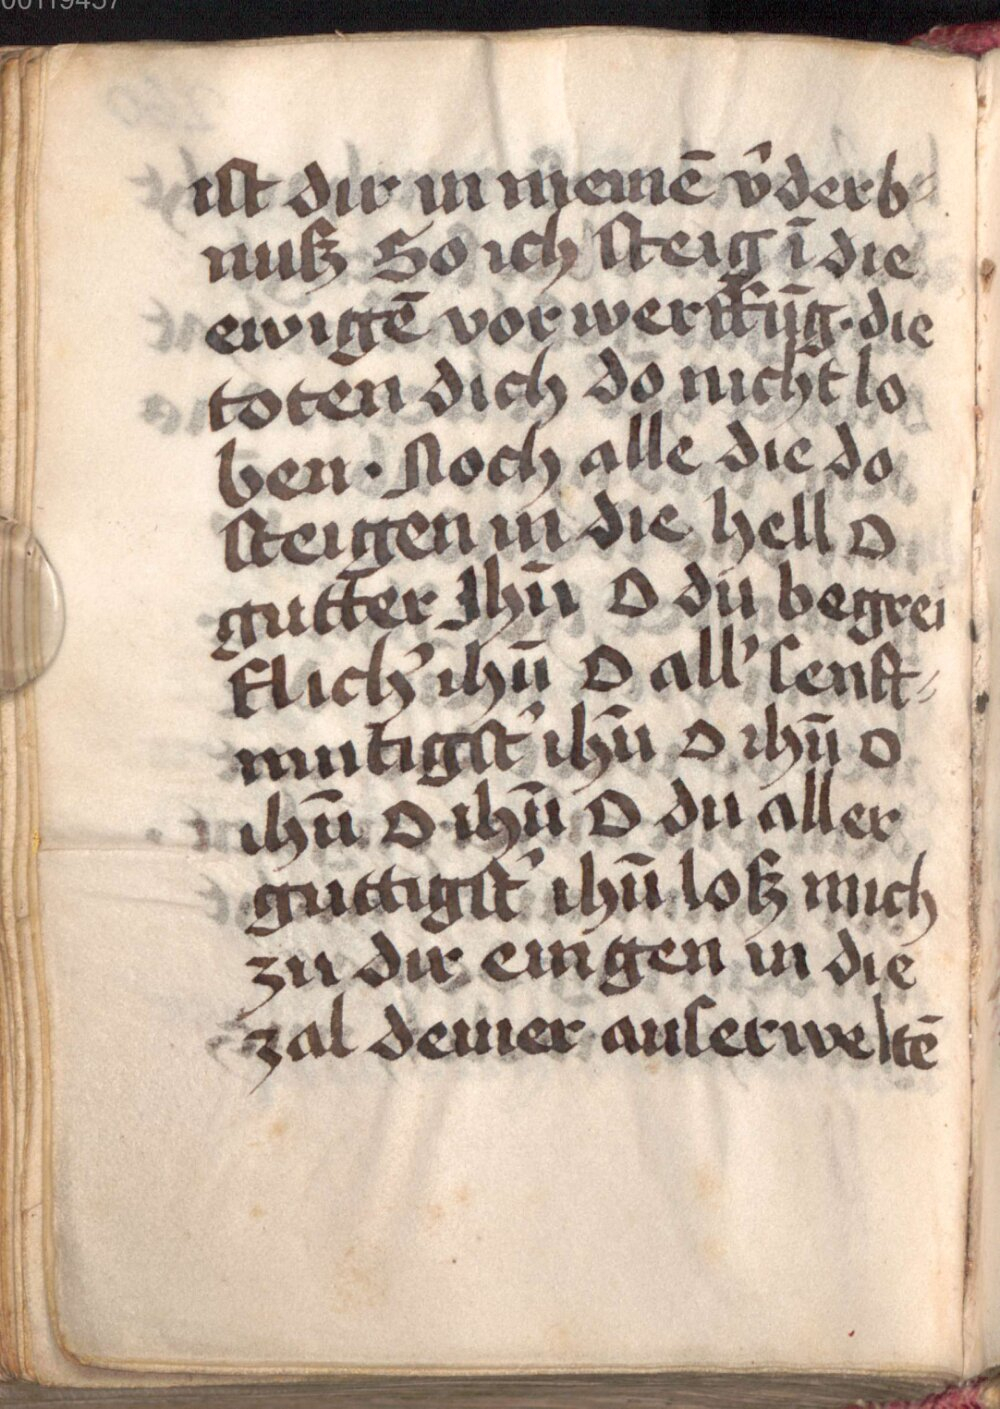 00119437
ist dir in meinē v̂derb⸗
nuß So ich steig ī die
ewigē vorwerffūg · die
toten dich do nicht lo
ben · Noch alle die do
steigen in die hell O
gutter Jhū O du begrei
flich' ihū O all' senft⸗
mutigst' ihū O ihū O
ihū O ihū O du aller
guttigst' ihū loß mich
zu dir eingen in die
zal deiner auserweltē